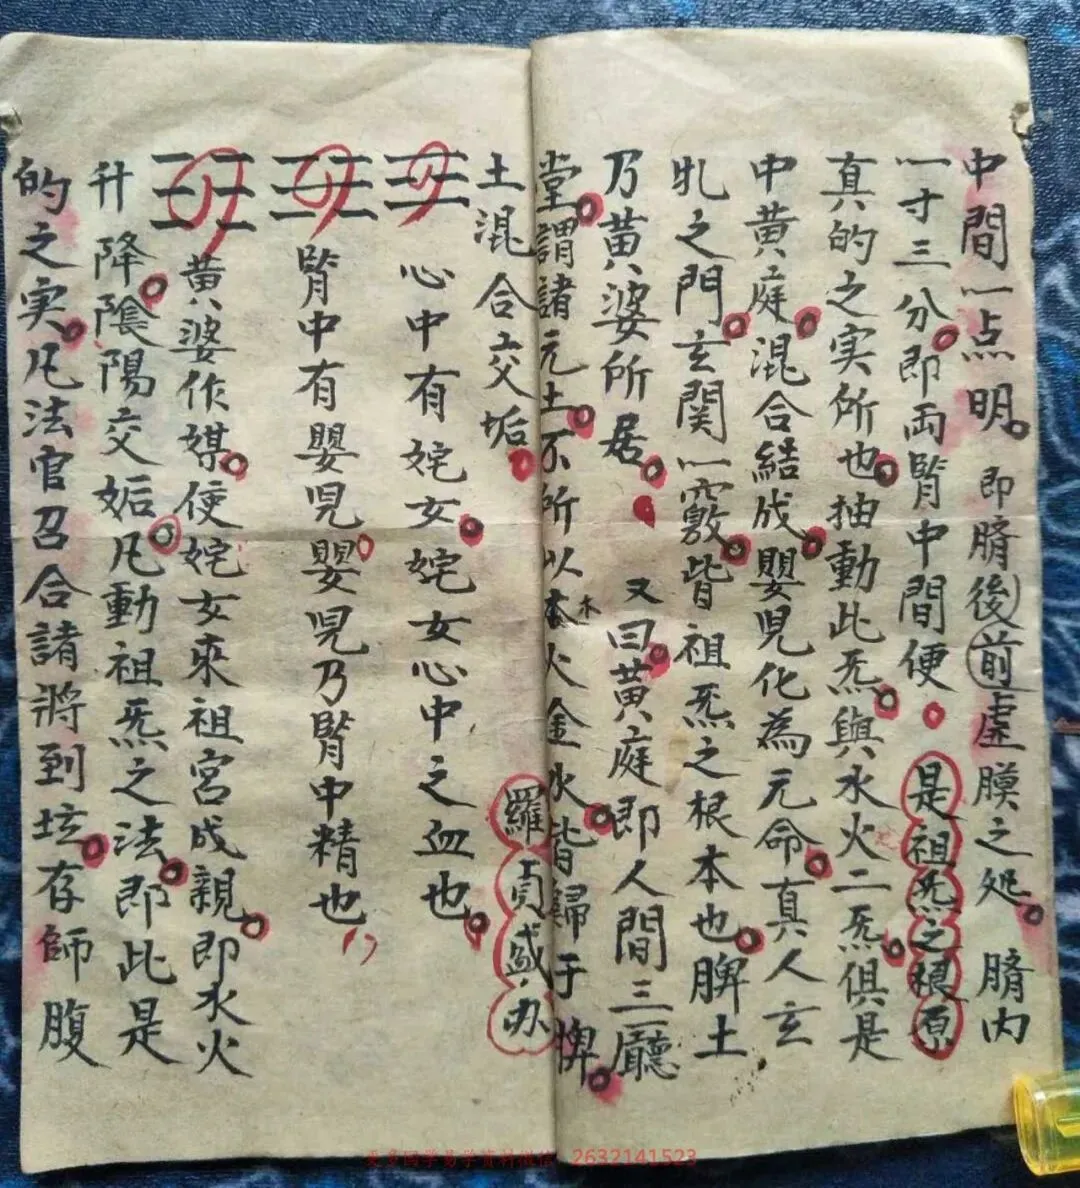 中間一点明 即臍後前虛膜之処 臍内
一寸三分即両腎中間便 是祖炁之根原
真的之実所也抽動此炁與水火二炁俱是
中黄庭混合結成嬰児化為元命真人玄
牝之門玄関一竅皆祖炁之根本也脾土
乃黄婆所居 又曰黄庭即人間三廳
堂謂諸元土不所以木火金水皆歸于脾
土混合交垢 羅 盛办
心中有姹女姹女心中之血也
腎中有嬰児嬰児乃腎中精也
黄婆作媒使姹女來祖宮成親即水火
升降陰陽交姤凡動祖炁之法即此是
的之実凡法官召合諸將到坛存師腹
更多国学易学资料微信 2632141523